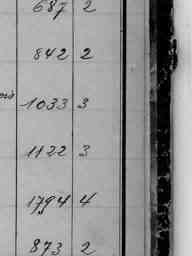 687 2
842 2
1033 3
1122 3
1794 4
873 2